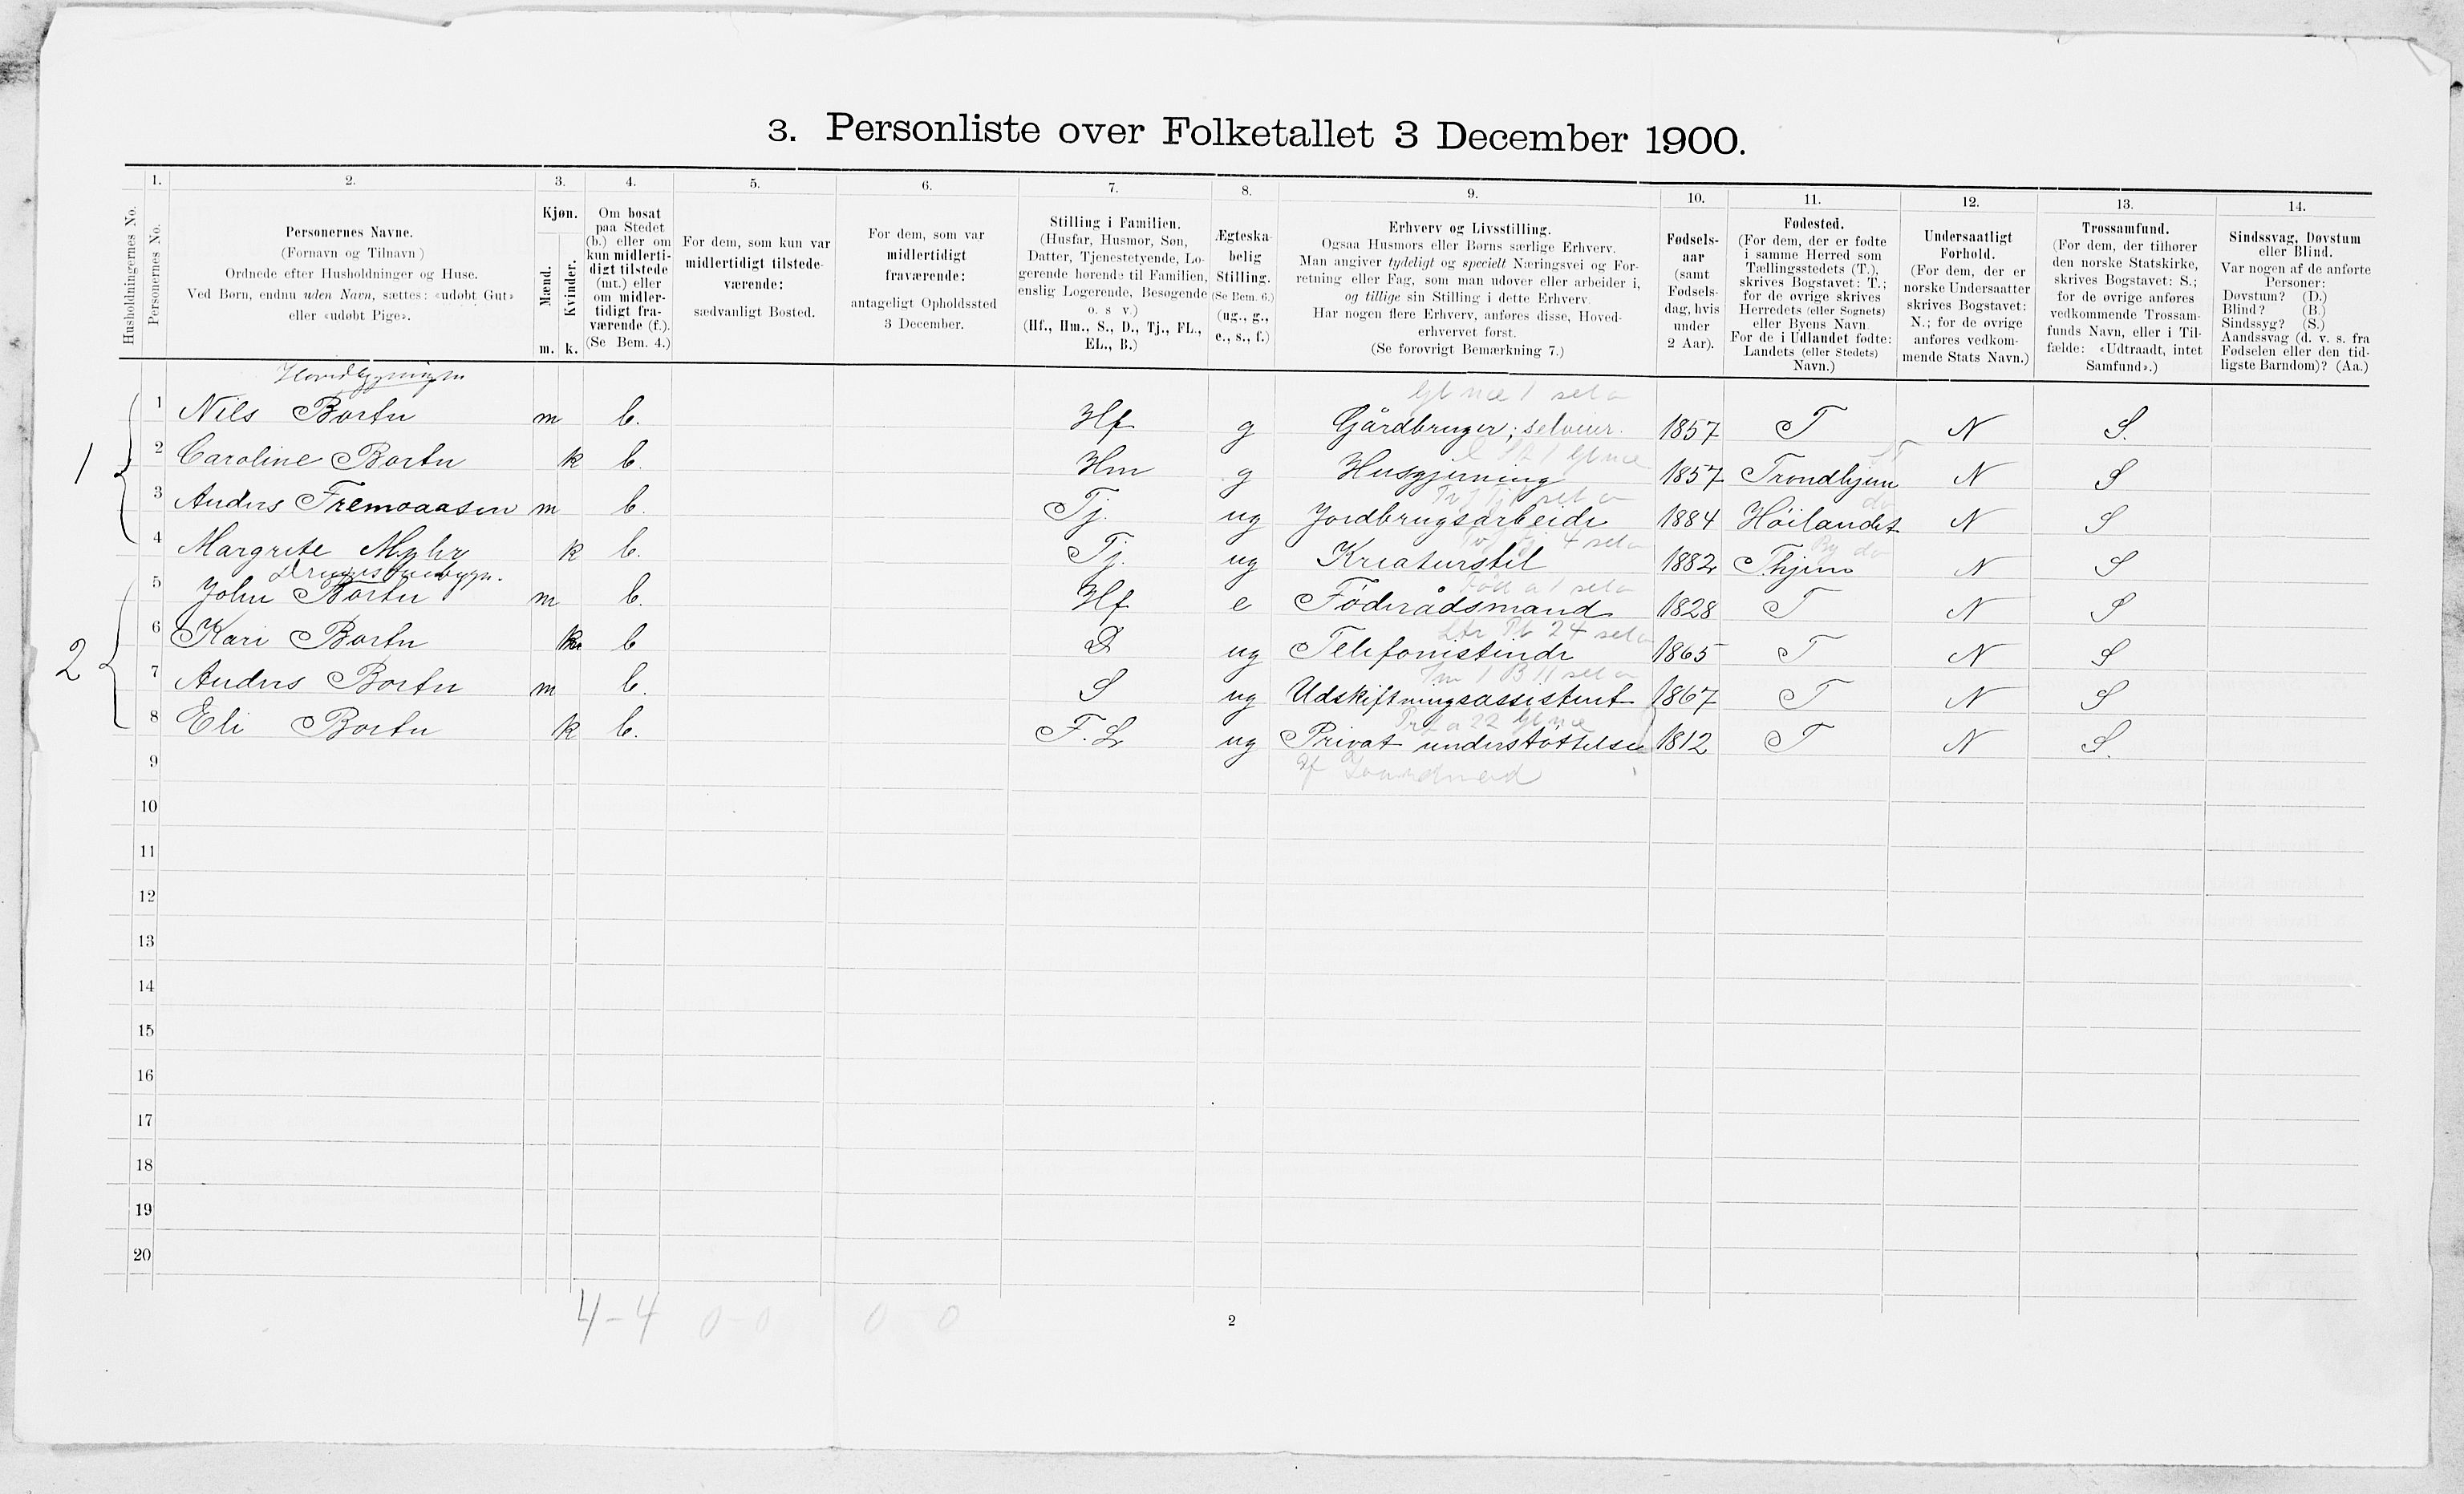 3. Personliste over Folketallet 3 December 1900.
Husholdningernes No.
1. Personernes No.
2. Personernes Navne.
(Fornavn og Tilnavn)
Ordnede efter Husholdninger og Huse.
Ved Børn, endnu uden Navn, sættes: «udøbt Gut»
eller «udøbt Pige».
3. Kjøn.
Mænd. Kvinder.
m. k.
4. Om bosat
paa Stedet
(b.) eller om
kun midlerti-
digt tilstede
(mt.) eller
om midler-
tidigt fra-
værende (f.).
(Se Bem. 4.)
5. For dem, som kun var
midlertidigt tilstede-
værende:
sædvanligt Bosted.
6. For dem, som var
midlertidigt
fraværende:
antageligt Opholdssted
3 December.
7. Stilling i Familien.
(Husfar, Husmor, Søn,
Datter, Tjenestetyende, Lo-
gerende hørende til Familien,
enslig Logerende, Besøgende
o. s v.)
(Hf., Hm., S., D., Tj., FL.,
EL., B.)
8. Ægteska-
belig
Stilling.
(Se Bem. 6.)
(ug., g.,
e., s., f.)
9. Erhverv og Livsstilling.
Ogsaa Husmors eller Børns særlige Erhverv.
Man angiver tydeligt og specielt Næringsvei og For-
retning eller Fag, som man udøver eller arbeider i,
og tillige sin Stilling i dette Erhverv.
Har nogen flere Erhverv, anføres disse, Hoved-
erhvervet først.
(Se forøvrigt Bemærkning 7.)
10. Fødsels-
aar
(samt
Fødsels-
dag, hvis
under
2 Aar).
11. Fødested.
(For dem, der er fødte
i samme Herred som
Tællingsstedets (T.),
skrives Bogstavet: T.;
for de øvrige skrives
Herredets (eller Sognets)
eller Byens Navn.
For de i Udlandet fødte:
Landets (eller Stedets)
Navn.)
12. Undersaatligt
Forhold.
(For dem, der er
norske Undersaatter
skrives Bogstavet:
N.; for de øvrige
anføres vedkom-
mende Stats Navn.)
13. Trossamfund.
(For dem, der tilhører
den norske Statskirke,
skrives Bogstavet: S.;
for de øvrige anføres
vedkommende Trossam-
funds Navn, eller i Til-
fælde: «Udtraadt, intet
Samfund».)
14. Sindssvag, Døvstum
eller Blind.
Var nogen af de anførte
Personer:
Døvstum? (D.)
Blind? (B.)
Sindssyg? (S.)
Aandssvag (d. v. s. fra
Fødselen eller den tid-
ligste Barndom)? (Aa.)
Hovedbygningen
1 1 Nils Bortn m b. Hf g Gårdbruger; selveier. 1857 T N S.
2 Caroline Bortn k b. Hm g Husgjerning 1857 Trondhjem N S
3 Anders Fremoaasen m b. Tj. ug Jordbrugsarbeide 1884 Höilandet N S
4 Margrete Myhr k b. Tj. ug Kreaturstel 1882 Thjem N S
2 5 John Bortn m b. Hf e Föderådsmand 1828 T N S
6 Kari Bortn k b D ug Telefonistinde 1865 T N S
7 Anders Bortn m b. S ug Udskiftningsassistent 1867 T N S
8 Eli Bortn k b. F. L ug Privat understöttelse 1812 T N S.
9
10
11
12
13
14
15
16
17
18
19
20
4-4 0-0 0 0
2